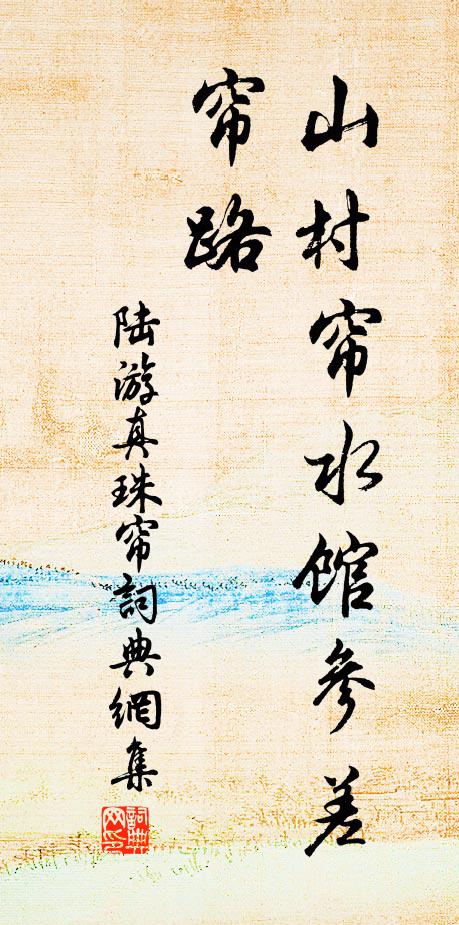 山村帘水馆参差
帘路
陆游真珠帘詞典網集
詞典网印